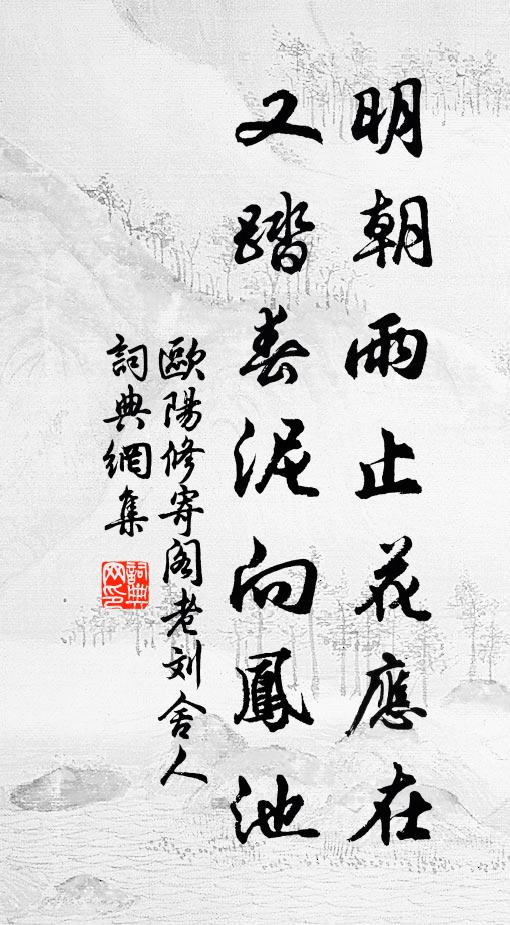 明朝雨止花應在
又踏春泥向鳳池
歐陽修寄阁老刘舍人
詞典網集
詞典网印